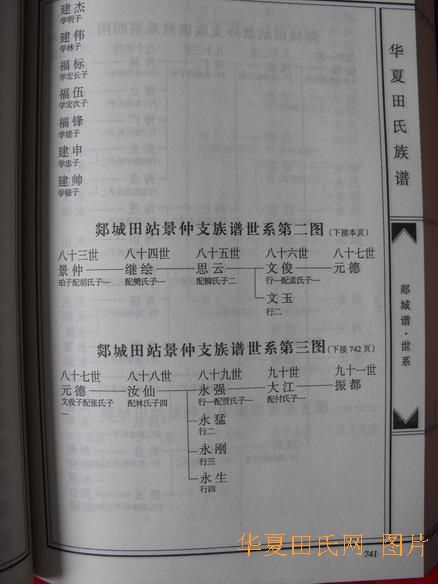 建杰
学明子
建伟
学林子
福标
学宏长子
福伍
学宏次子
福锋
学建子
建申
学忠子
建帅
学银子
华夏田氏族谱
郯城谱·世系
郯城田站景仲支族谱世系第二图(下接本页)
八十三世 八十四世 八十五世 八十六世 八十七世
景仲 继绘 思云 文俊 元德
珀子配胡氏子一 配樊氏子一 配柳氏子二 行一配孟氏子一
文玉
行二
郯城田站景仲支族谱世系第三图(下接742页)
八十七世 八十八世 八十九世 九十世 九十一世
元德 汝仙 永强 大江 振都
文俊子配张氏子一 配林氏子四 行一配贾氏子一 配付氏子一
永猛
行二
永刚
行三
永生
行四
741
华夏田氏网 图片